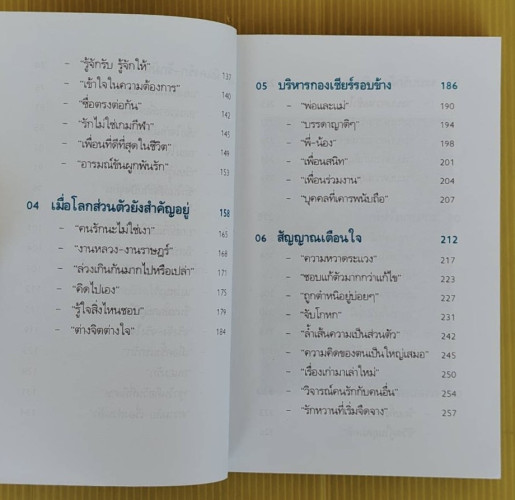 - "รู้จักรับ รู้จักให้" 137
- "เข้าใจในความต้องการ" 140
- "ซื่อตรงต่อกัน" 142
- "รักไม่ใช่เกมกีฬา" 145
- "เพื่อนที่ดีที่สุดในชีวิต" 149
- "อารมณ์ขันผูกพันรัก" 153
04 เมื่อโลกส่วนตัวยังสำคัญอยู่ 158
- "คนรักนะไม่ใช่เงา" 165
- "งานหลวง-งานราษฎร์" 168
- "ล่วงเกินกันมากไปหรือเปล่า" 171
- "คิดไปเอง" 175
- "รู้ใจสิ่งไหนชอบ" 179
- "ต่างจิตต่างใจ" 184
05 บริหารกองเชียร์รอบข้าง 186
- "พ่อและแม่" 190
- "บรรดาญาติๆ" 194
- "พี่-น้อง" 198
- "เพื่อนสนิท" 201
- "เพื่อนร่วมงาน" 204
- "บุคคลที่เคารพนับถือ" 207
06 สัญญาณเตือนใจ 212
- "ความหวาดระแวง" 217
- "ชอบแก้ตัวมากกว่าแก้ไข" 223
- "ถูกตำหนิอยู่บ่อยๆ" 227
- "จับโกหก" 231
- "ล้ำเส้นความเป็นส่วนตัว" 242
- "ความคิดของตนเป็นใหญ่เสมอ" 245
- "เรื่องเก่ามาเล่าใหม่" 250
- "วิจารณ์คนรักกับคนอื่น" 254
- "รักหวานที่เริ่มจืดจาง" 257